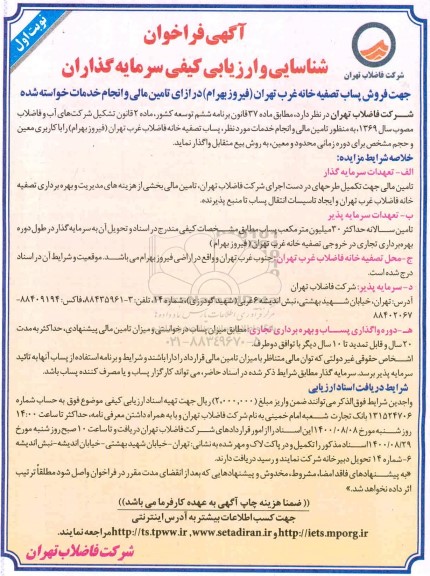 نوبت اول
شرکت فاضلاب تهران
آگهی فراخوان
شناسایی و ارزیابی کیفی سرمایه گذاران
جهت فروش پساب تصفیه خانه غرب تهران (فیروز بهرام) در ازای تامین مالی و انجام خدمات خواسته شده
شرکت فاضلاب تهران در نظر دارد، مطابق ماده ۳۷ قانون برنامه ششم توسعه کشور، ماده ۲ قانون تشکیل شرکت‌های آب و فاضلاب
مصوب سال ۱۳۶۹، به منظور تامین مالی و انجام خدمات مورد نظر، پساب تصفیه خانه فاضلاب غرب تهران (فیروز بهرام) را با کاربری معین
و حجم مشخص برای دوره زمانی محدود و معین، به روش بیع متقابل واگذار نماید.
خلاصه شرایط مزایده:
الف- تعهدات سرمایه گذار
تامین مالی جهت تکمیل طرحهای در دست اجرای شرکت فاضلاب تهران، تامین مالی بخشی از هزینه های مدیریت و بهره برداری تصفیه
خانه فاضلاب غرب تهران و ایجاد تاسیسات انتقال پساب تا منبع پذیرنده.
ب- تعهدات سرمایه پذیر
تامین سالانه حداکثر ۳۰ میلیون متر مکعب پساب مطابق مشخصات کیفی مندرج در اسناد و تحویل آن به سرمایه گذار در طول دوره
بهره برداری تجاری در خروجی تصفیه خانه غرب تهران (فیروز بهرام)
ج- محل تصفیه خانه فاضلاب غرب تهران: جنوب غرب تهران و واقع در اراضی فیروز بهرام می باشد. موقعیت و شرایط آن در اسناد
درج شده است.
د- سرمایه پذیر: شرکت فاضلاب تهران
آدرس: تهران، خیابان شهید بهشتی، نبش اندیشه ۶ غربی (شهید گودرزی)، شماره ۱۴، تلفن: ۳-۸۸۴۳۵۹۶۱ فاکس: ۸۸۴۰۹۱۹۴-
۸۸۴۰۲۰۶۷
هـ- دوره واگذاری پساب و بهره برداری تجاری: مطابق میزان پساب درخواستی و میزان تامین مالی پیشنهادی، حداکثر به مدت
۲۰ سال و قابل تمدید تا ۱۰ سال دیگر با توافق دو طرف.
اشخاص حقوقی غیر دولتی که توان مالی متناظر با میزان تامین مالی قرارداد را دارا باشند و شرایط و برنامه استفاده از پساب آنها به تائید
سرمایه پذیر برسد. سرمایه گذار مطابق شرایط ذکر شده در اسناد حاضر، می تواند کارگزار پساب و یا مصرف کننده پساب باشد.
شرایط دریافت اسناد ارزیابی
واجدین شرایط فوق الذکر می توانند ضمن واریز مبلغ (۲،۰۰۰،۰۰۰) ریال جهت تهیه اسناد ارزیابی کیفی موضوع فوق به حساب شماره
۱۳۱۵۲۴۷۰۶ بانک تجارت شعبه امام خمینی به نام شرکت فاضلاب تهران و یا به همراه داشتن معرفی نامه، حداکثر تا ساعت ۱۴:۰۰
روز شنبه مورخ ۱۴۰۰/۰۸/۰۸ این اسناد را از امور قراردادهای شرکت فاضلاب تهران دریافت و تا ساعت ۱۰ صبح روز شنبه مورخ
۱۴۰۰/۰۸/۲۹ اسناد مذکور را تکمیل و در پاکت لاک و مهر شده به نشانی: تهران- خیابان شهید بهشتی- خیابان اندیشه- نبش اندیشه
۶- شماره ۱۴ تحویل دبیرخانه شرکت نمایند و رسید دریافت دارند.
«به پیشنهادهای فاقد امضا، مشروط، مخدوش و پیشنهادهایی که بعد از انقضای مدت مقرر در فراخوان واصل شود مطلقاً ترتیب
اثر داده نخواهد شد.»
((ضمنا هزینه چاپ آگهی به عهده کارفرما می باشد))
جهت کسب اطلاعات بیشتر به آدرس اینترنتی
http://iets.mporg.ir و www.setadiran.ir , http://ts.tpww.ir مراجعه نمایند.
شرکت فاضلاب تهران